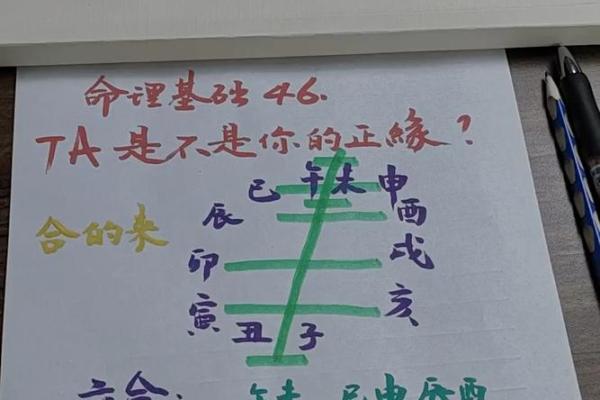 命理基础 46.
TA 是不是你的正緣？
巳 午 未 申
辰 酉
合的来
卯 戌
寅 亥
丑 子
六合： 午未 巳申 辰酉